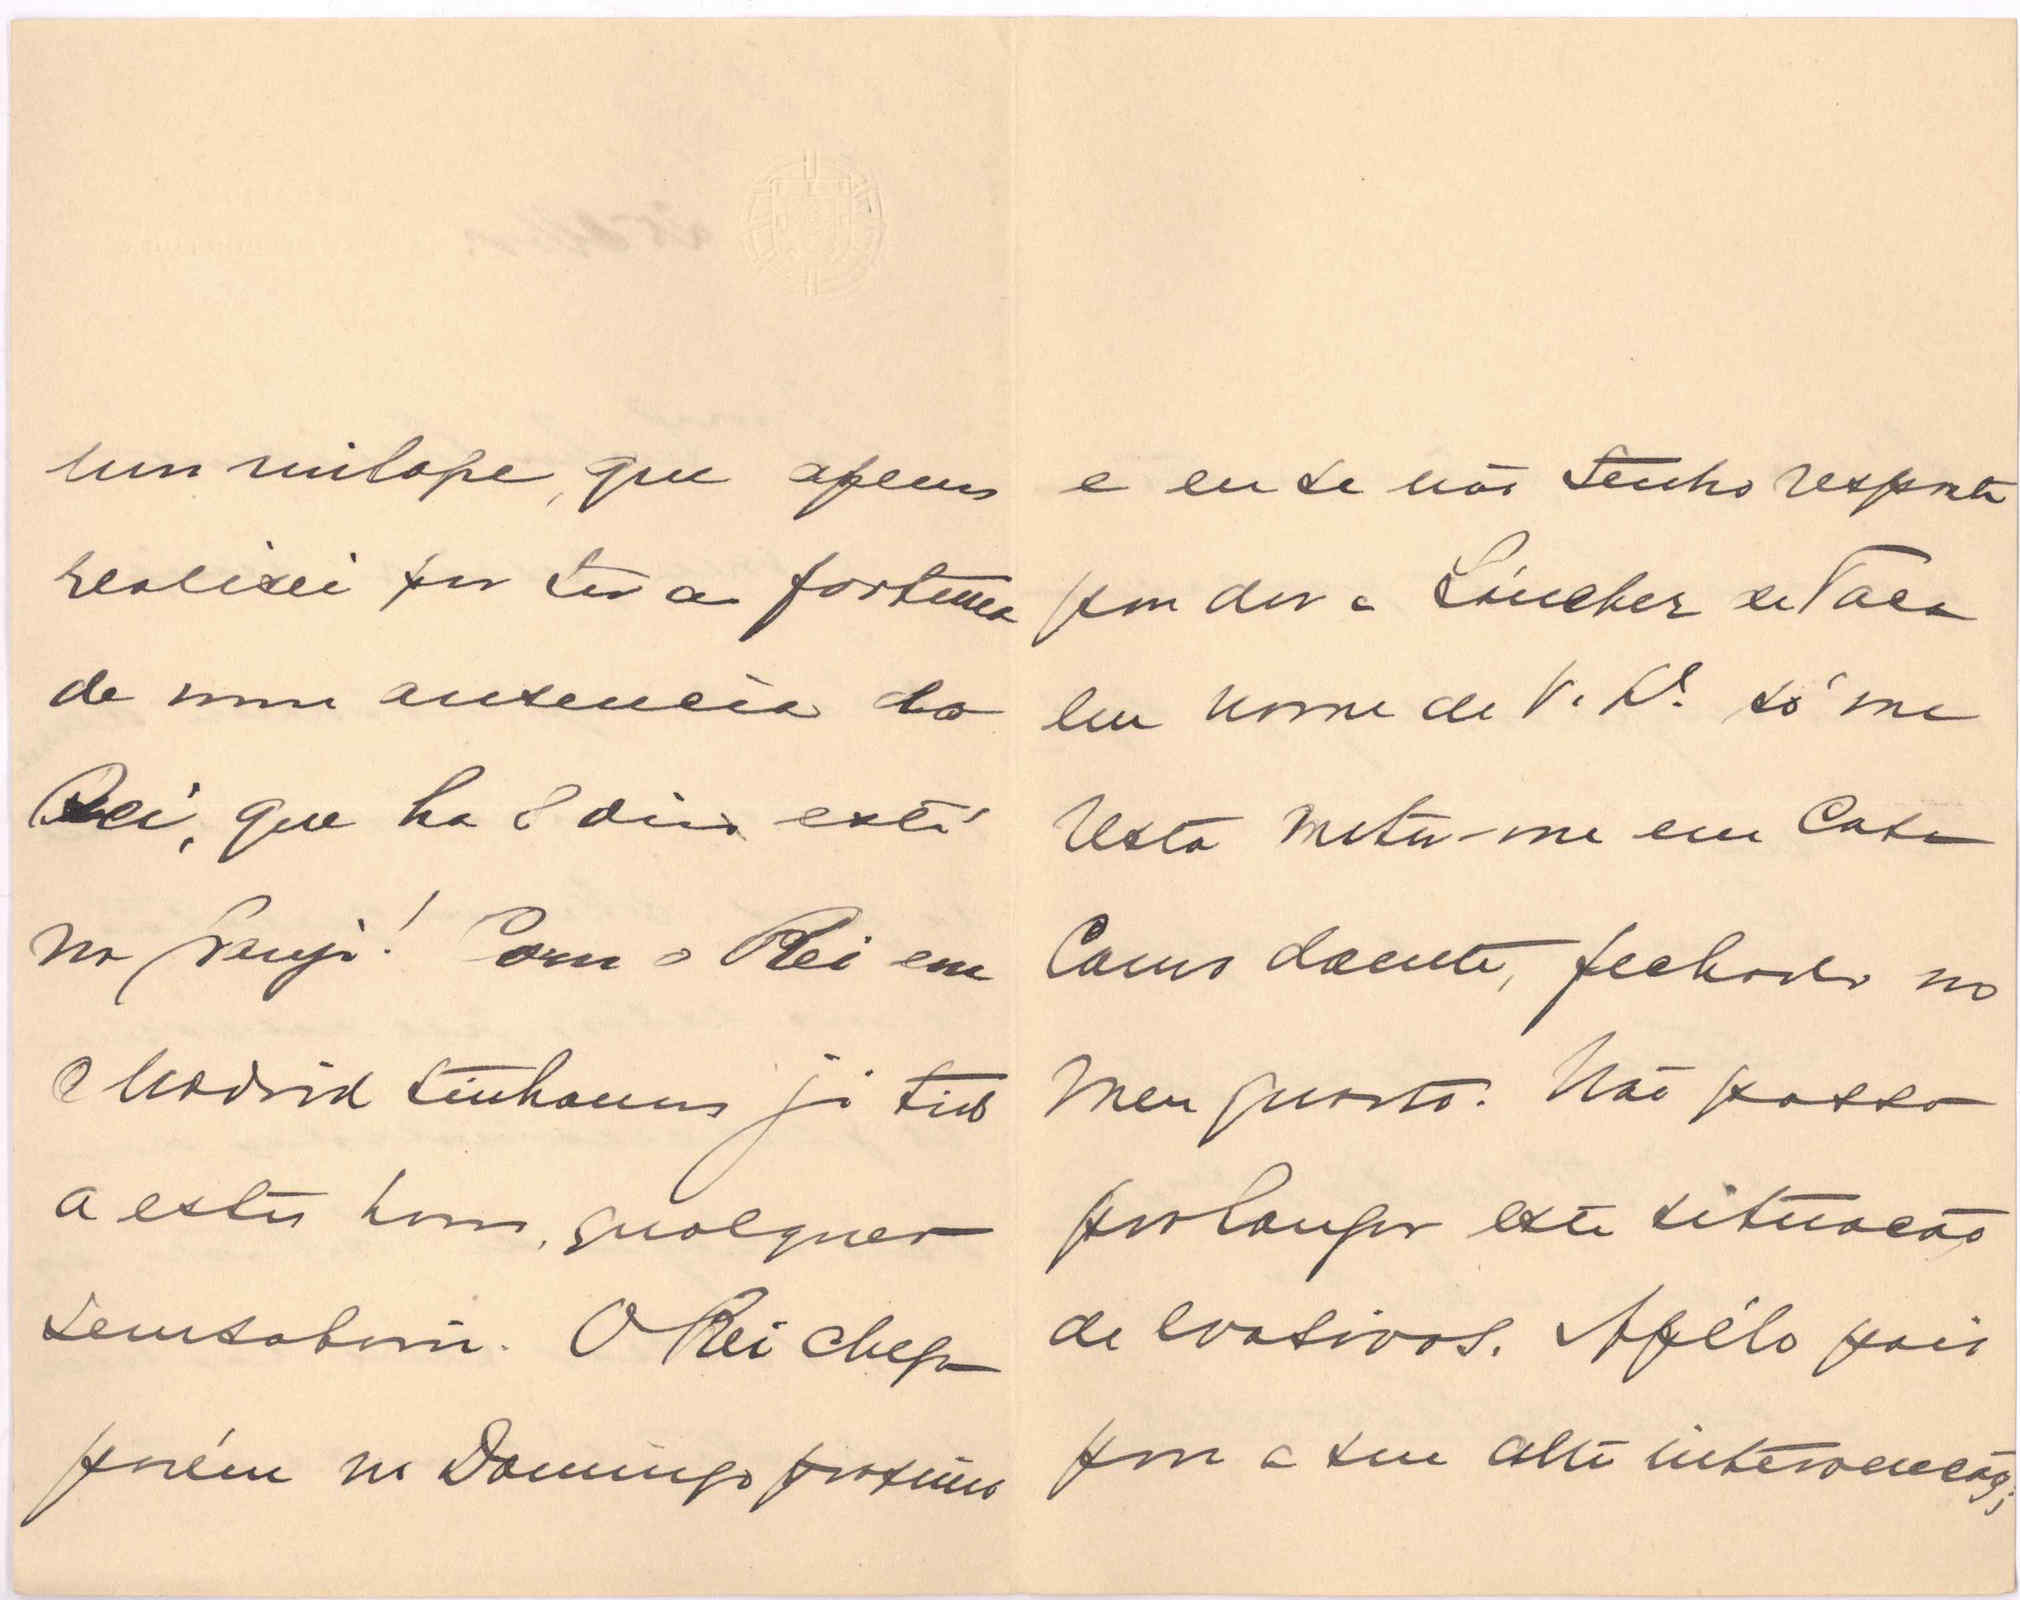 um milagre, que apenas
realisei por ter a fortuna
de uma ausencia do
Rei, que ha 8 dias está
na Granja! Com o Rei em
Madrid tinhamos já tido
a estas horas, qualquer
semsaboria. O Rei chega
porém no Domingo proximo
e eu se não tenho resposta
para dar a Sánchez de Toca
em nome de V. Exª só me
resta meter-me em casa
como doente, fechado no
meu quarto. Não posso
prolongar esta situação
de evasivas. Apélo pois
para a sua alta intervenção;